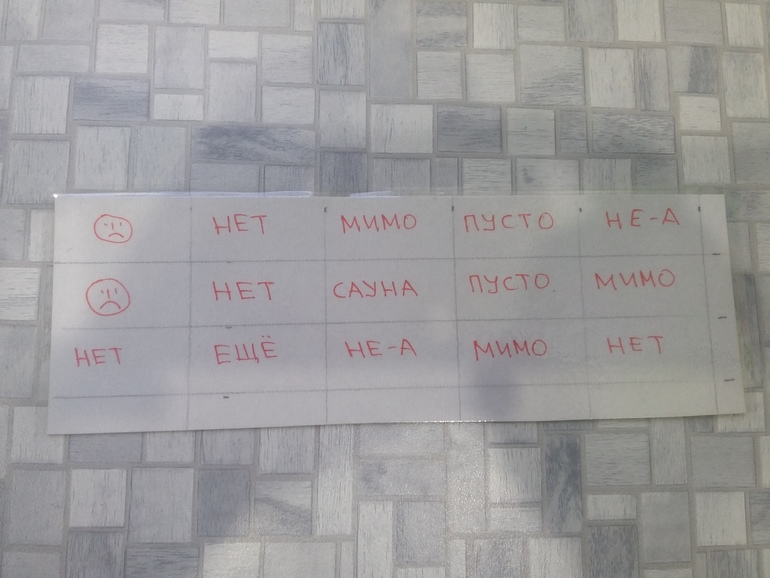 НЕТ МИМО ПУСТО НЕ-А
НЕТ САУНА ПУСТО МИМО
НЕТ ЕЩЁ НЕ-А МИМО НЕТ